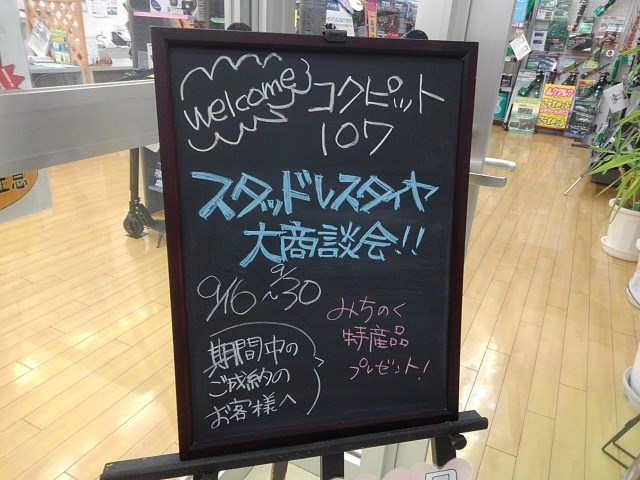 welcome
コクピット
107
スタッドレスタイヤ
大商談会!!
9/16~9/30
期間中の
ご成約の
お客様へ
みちのく
特産品
プレゼント!